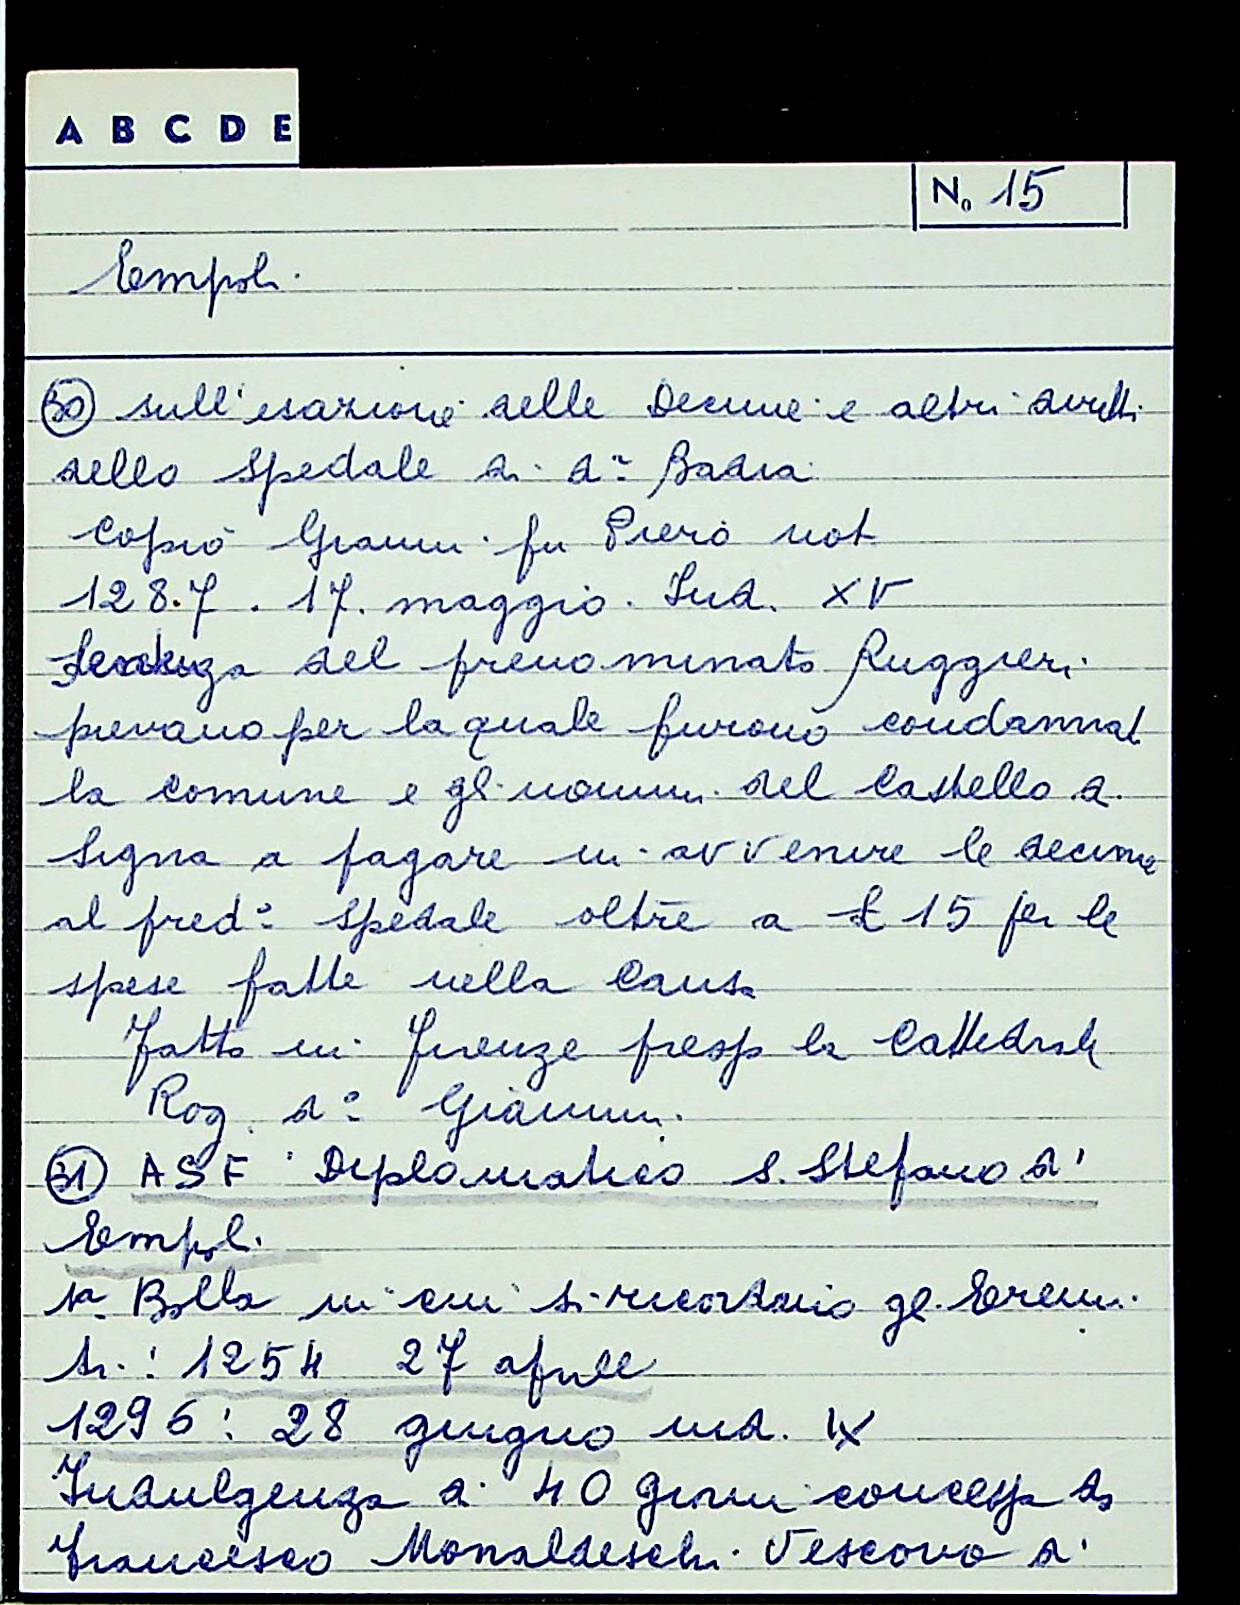 A B C D E
No 15
Empoli.
30 sull'esazione delle Decime e altri diritti
dello Spedale di da Badia
Copiò Gianni fu Piero not
1287. 17. maggio. Ind. XV
Sentenza del prenominato Ruggieri
pievano per la quale furono condannat
la comune e gli uomini del Castello di
Signa a pagare in avvenire le decime
al predo Spedale oltre a £ 15 per le
spese fatte nella causa
Fatto in Firenze presso la Cattedrale
Rog. do Gianni.
31 ASF Diplomatico S. Stefano di
Empoli.
1a Bolla in cui si ricordano gli Eremi
ti: 1254 27 aprile
1296: 28 giugno ind. IX
Indulgenza di 40 giorni concessa da
Francesco Monaldeschi Vescovo di